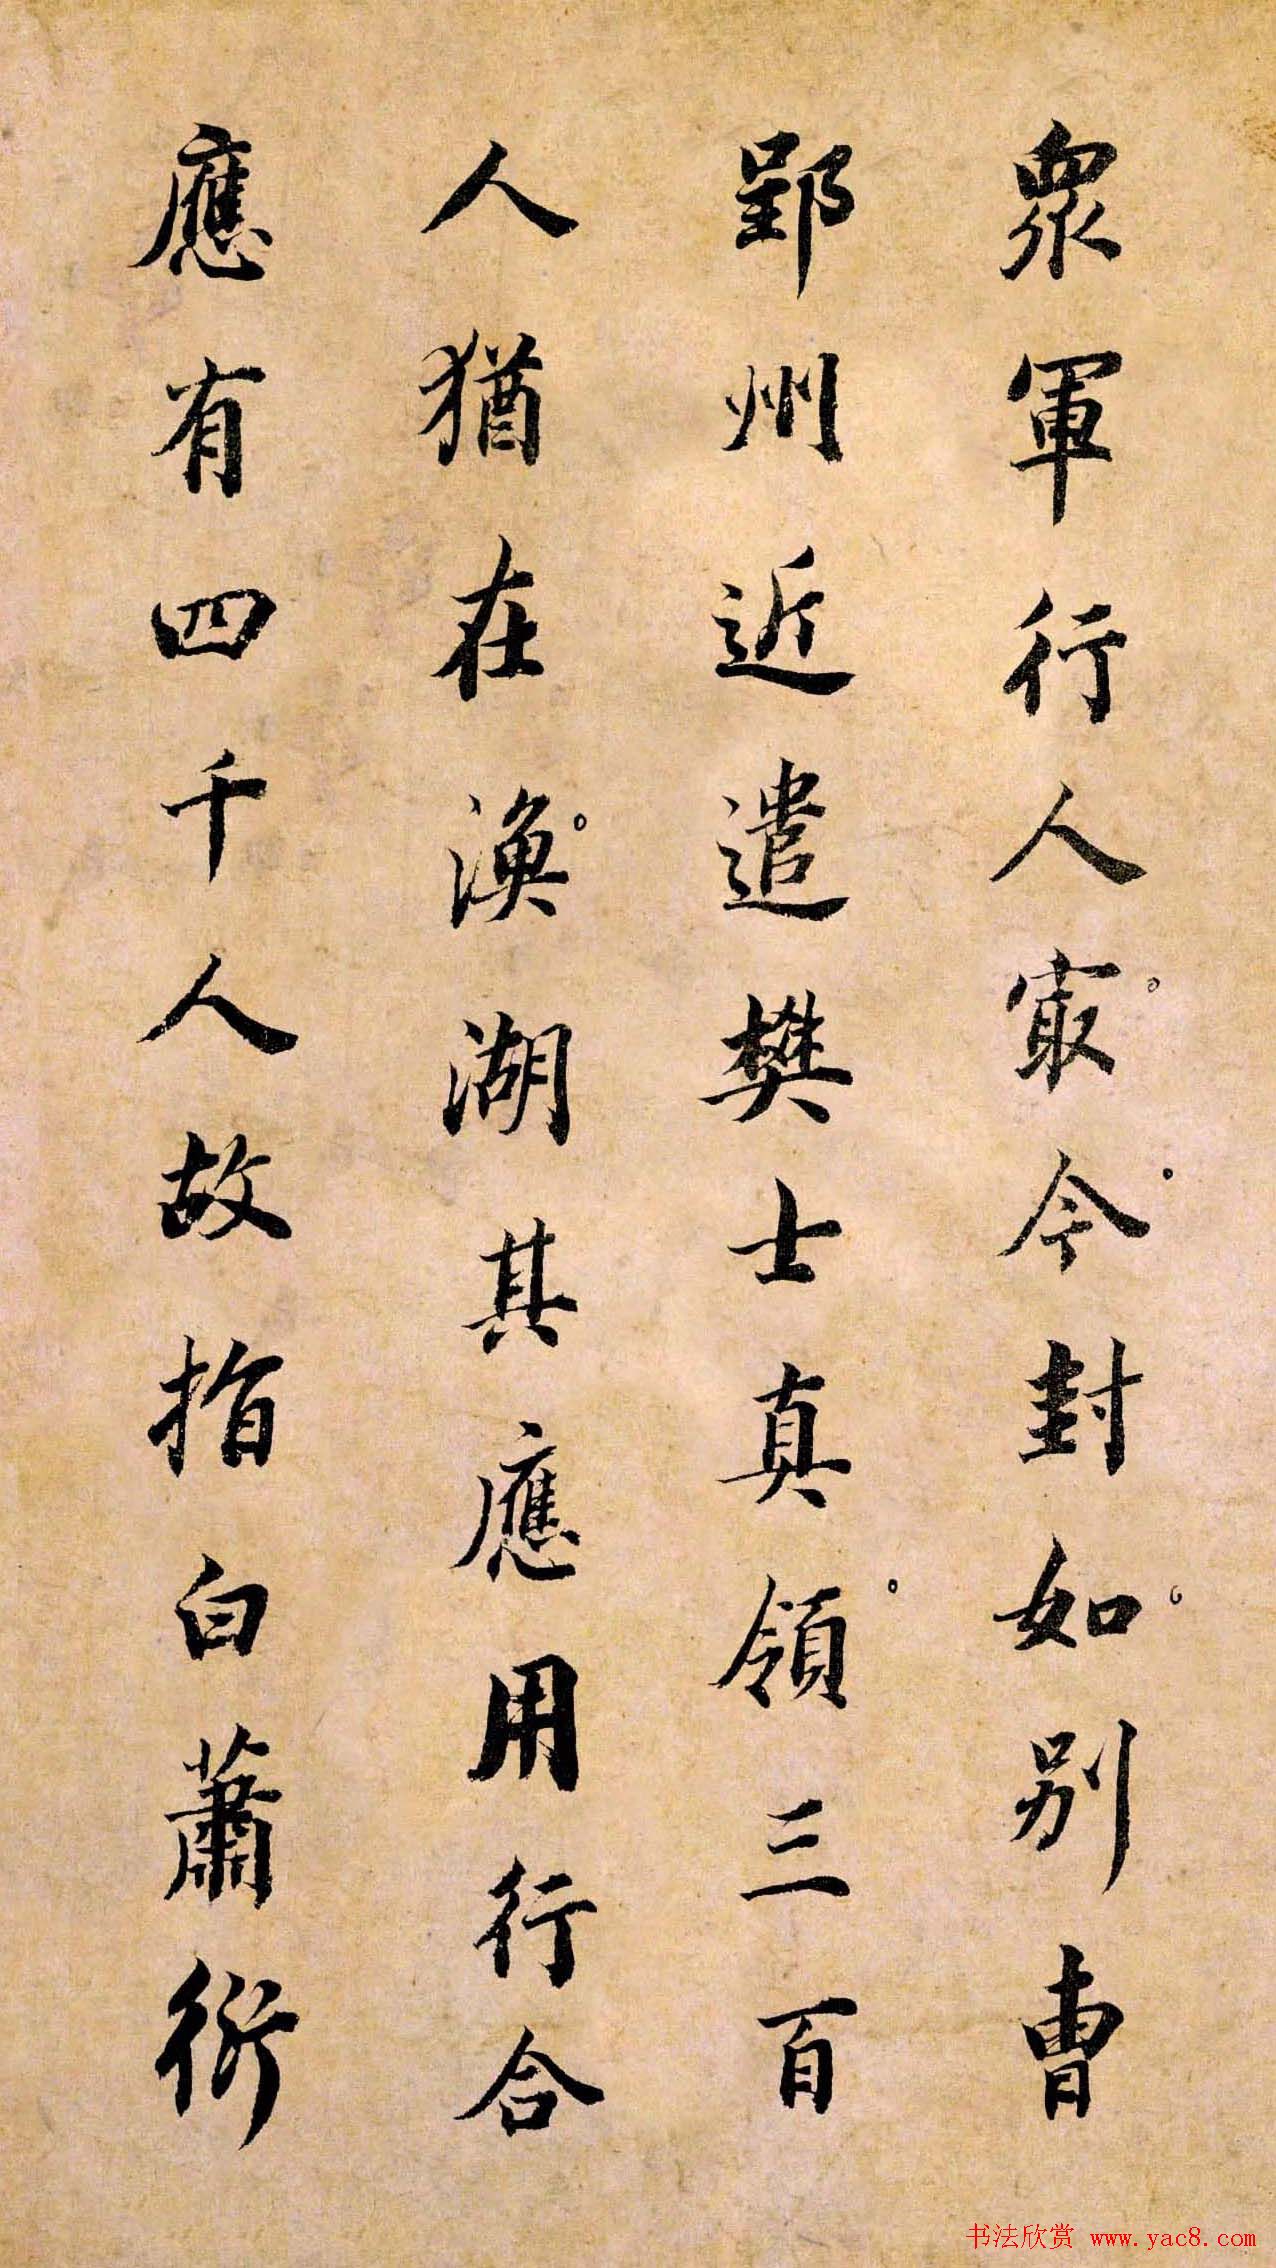 眾軍行人冣今封如别曹
郢州近遣樊士真領三百
人猶在漁湖其應用行合
應有四千人故指白蕭衍
书法欣赏 www.yac8.com